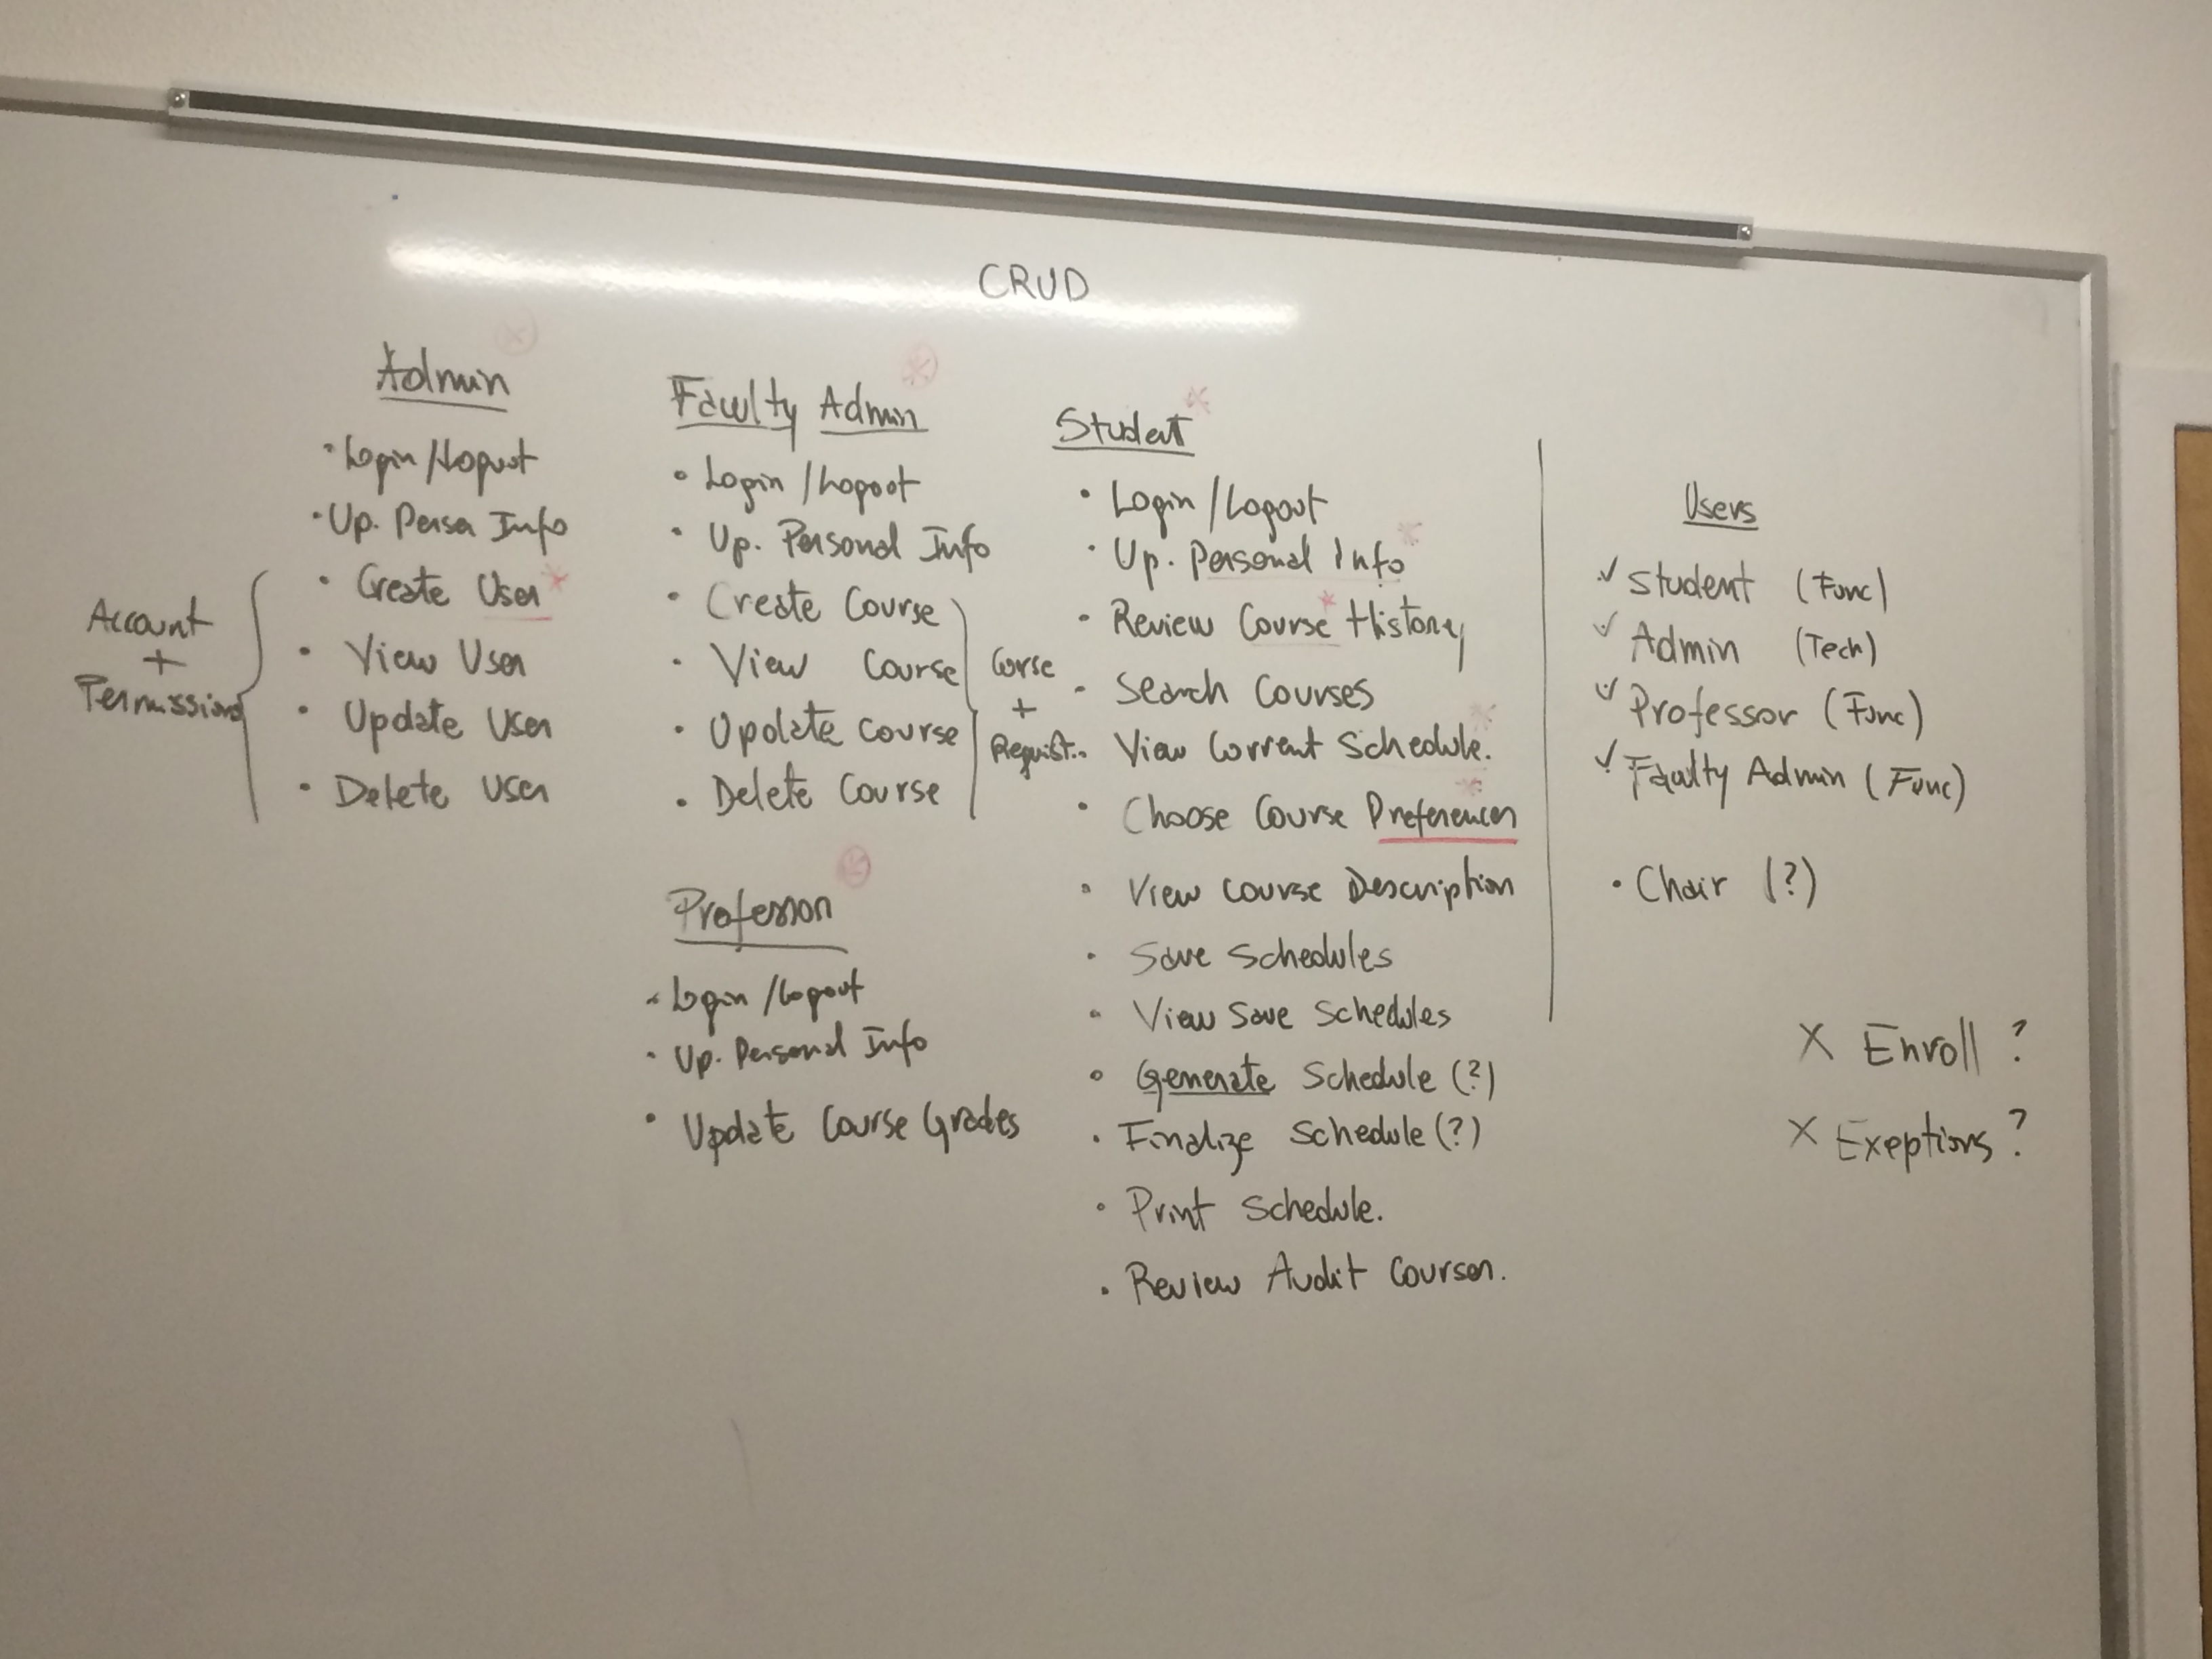 CRUD
Admin
• Login/Logout
• Up. Persa Info
• Create User *
• View User
• Update User
• Delete User
Account
+
Permissions
Faculty Admin
• Login/Logout
• Up. Personal Info
• Create Course
• View Course
• Update Course
• Delete Course
Corse
+
Requist..
Professor
• Login/Logout
• Up. Personal Info
• Update Course Grades
Student *
• Login/Logout
• Up. Personal Info *
• Review Course * History
• Search Courses
• View Current Schedule. *
• Choose Course Preferences *
• View Course Description
• Save Schedules
• View Save Schedules
• Generate Schedule (?)
• Finalize Schedule (?)
• Print Schedule.
• Review Audit Courses.
Users
✓ Student (Func)
✓ Admin (Tech)
✓ Professor (Func)
✓ Faculty Admin (Func)
• Chair (?)
X Enroll ?
X Exeptions ?